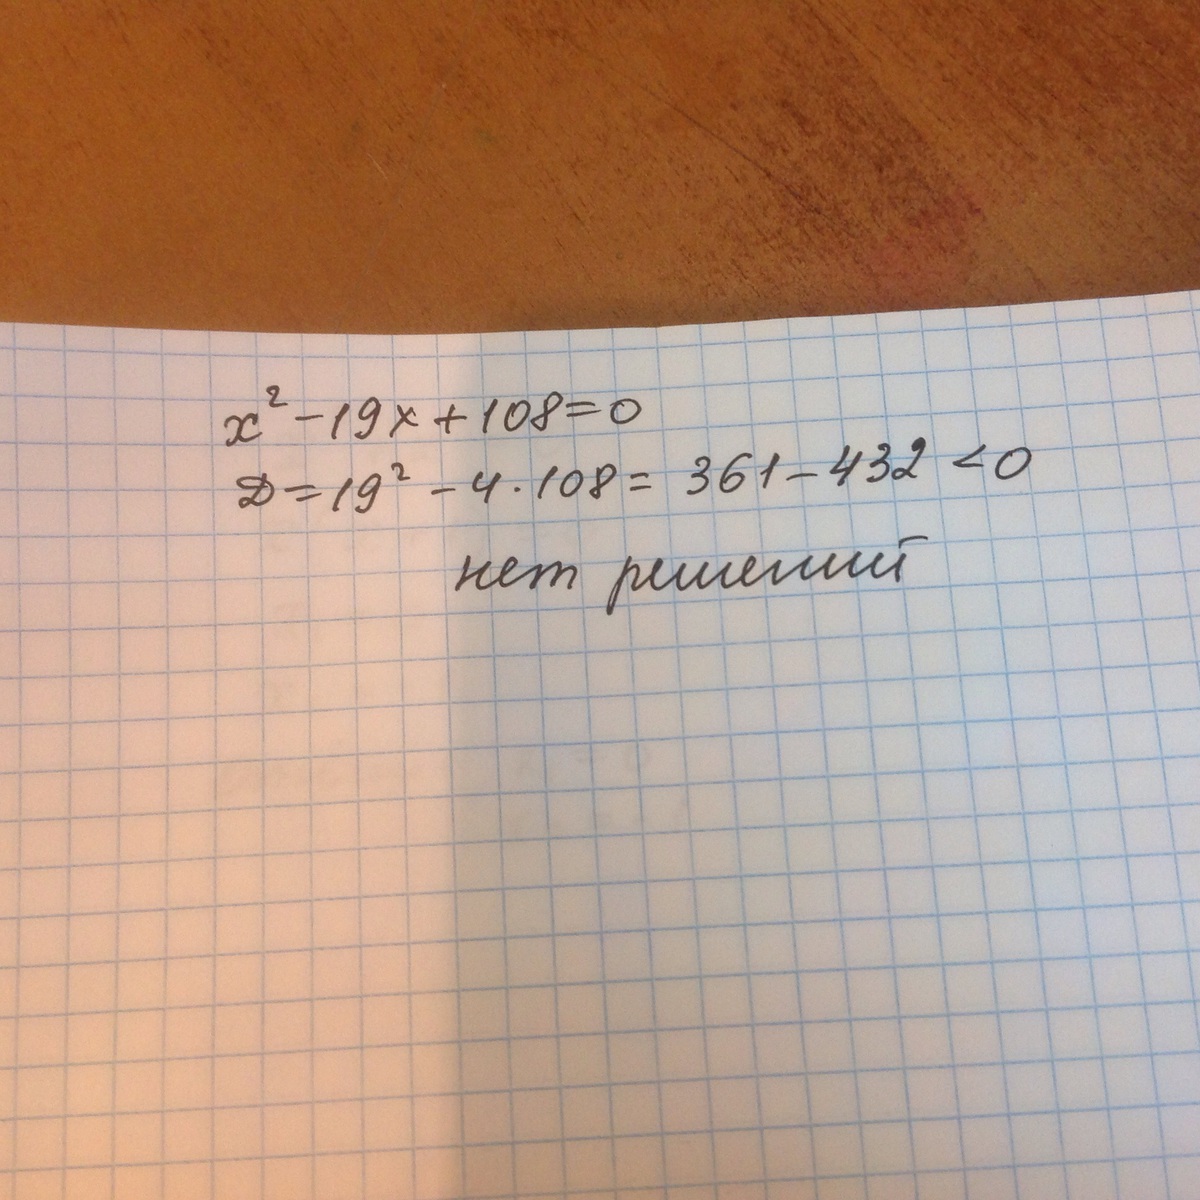 x² - 19x + 108 = 0
D = 19² - 4 · 108 = 361 - 432 < 0
нет решений